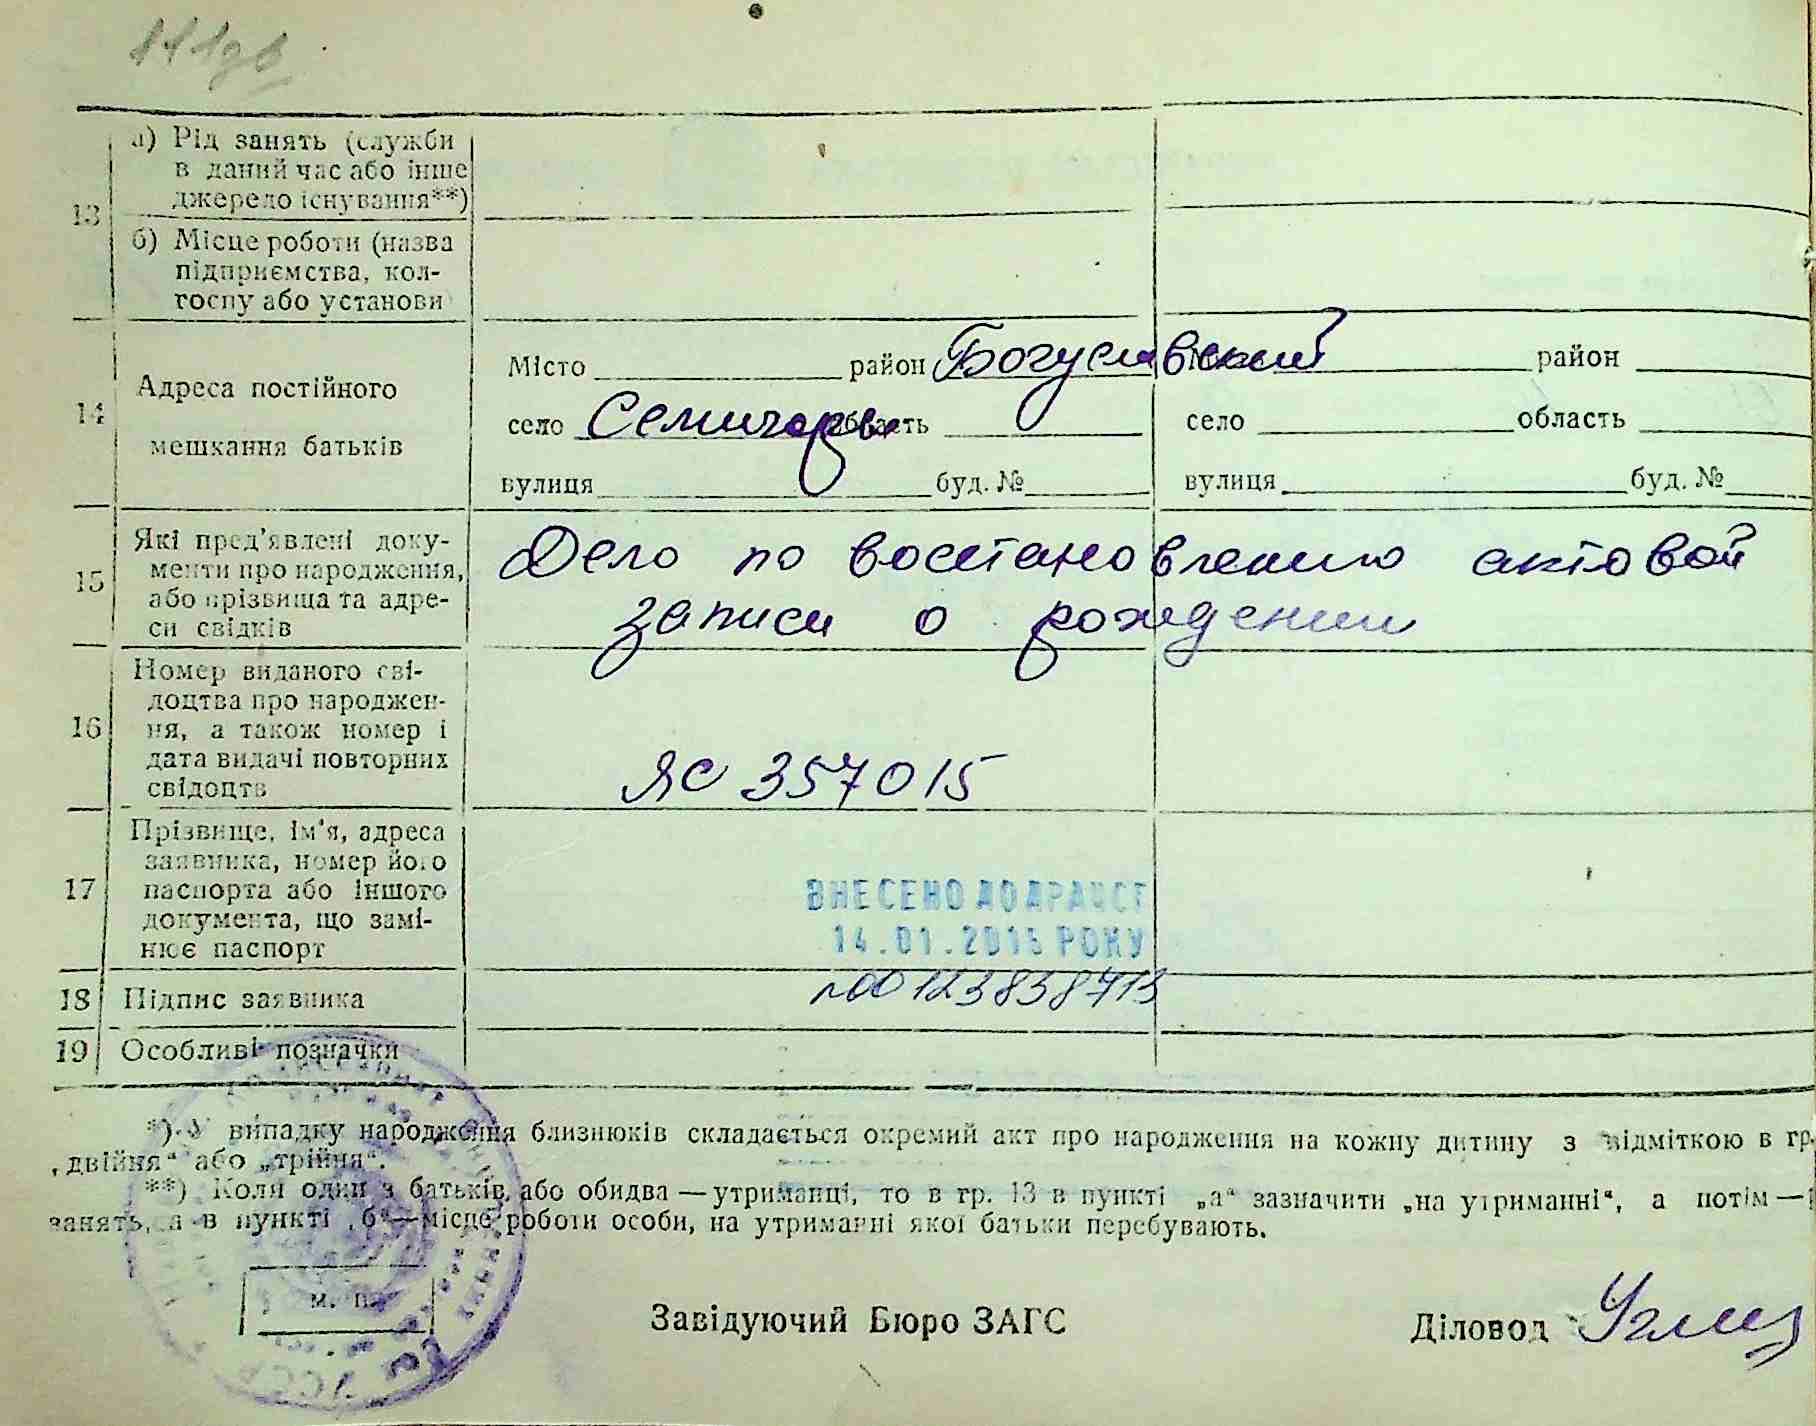 а) Рід занять (служби
в даний час або інше
джерело існування**)
13
б) Місце роботи (назва
підприємства, кол-
госпу або установи
14
Адреса постійного
мешкання батьків
Місто район Богуславский район
село область село область
вулиця буд. № вулиця буд. №
15
Які пред'явлені доку-
менти про народження,
або прізвища та адре-
си свідків
Дело по восстановлению актовой
записи о рождении
16
Номер виданого сві-
доцтва про народжен-
ня, а також номер і
дата видачі повторних
свідоцтв
ЯС 357015
17
Прізвище, ім'я, адреса
заявника, номер його
паспорта або іншого
документа, що замі-
нює паспорт
ВНЕСЕНО ДО ДРАЦСГ
14.01.2015 РОКУ
18 Підпис заявника
№00123838713
19 Особливі позначки
*) У випадку народження близнюків складається окремий акт про народження на кожну дитину з відміткою в гр.
„двійня“ або „трійня“.
**) Коли один з батьків, або обидва — утриманці, то в гр. 13 в пункті „а“ зазначити „на утриманні“, а потім —
занять, а в пункті „б“ — місце роботи особи, на утриманні якої батьки перебувають.
м. п.
Завідуючий Бюро ЗАГС Діловод